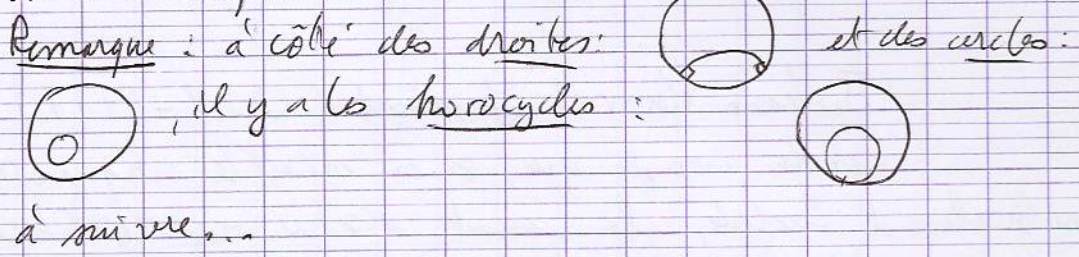 Remarque : à côté des droites : et des cercles :
, il y a les horocycles :
à suivre...